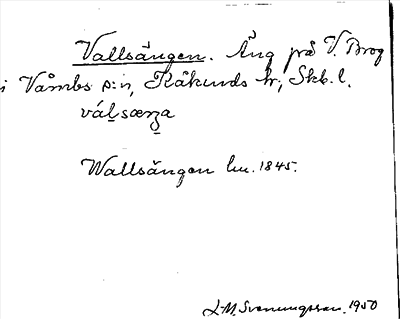 Vallsängen. Äng på V. Brog
i Våmbs s:n, Kåkinds hd, Skb. l.
válsæŋa
Wallsängen lm. 1845.
L-M. Svenungsson. 1950